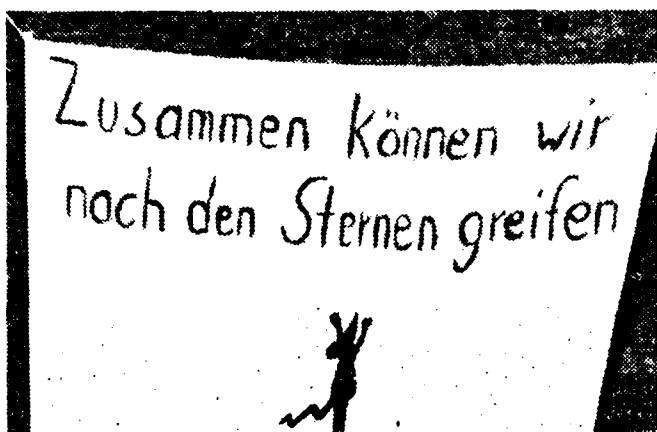 Zusammen können wir
nach den Sternen greifen